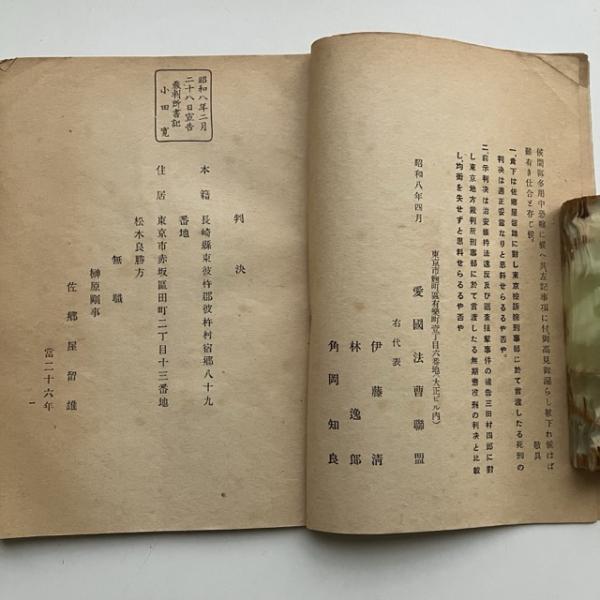 候間御多用中恐縮に候へ共左記事項に付御高見御漏らし被下れ候はば
難有き仕合と存じ候。
敬具
一、貴下は佐郷屋留雄に對し東京控訴院刑事部に於て言渡したる死刑の
判決は適正妥當なりと思料せらるるや否や。
二、前示判決は治安維持法違反及び調査殺軍事件の被告三田村四郎に對
し東京地方裁判所刑事部に於て言渡したる無期懲役刑の判決と比較
し均衡を失せずと思料せらるるや否や
昭和八年四月
東京市麹町區有樂町壹丁目六番地(大正ビル内)
愛國法曹聯盟
右代表
伊藤清
林逸郎
角岡知良
昭和八年二月
二十八日宣告
裁判所書記
小田寛
判決
本籍 長崎縣東彼杵郡彼杵村宿郷八十九
番地
住居 東京市赤坂區田町二丁目十三番地
松木良勝方
無職
榊原剛事
佐郷屋留雄
當二十六年
一